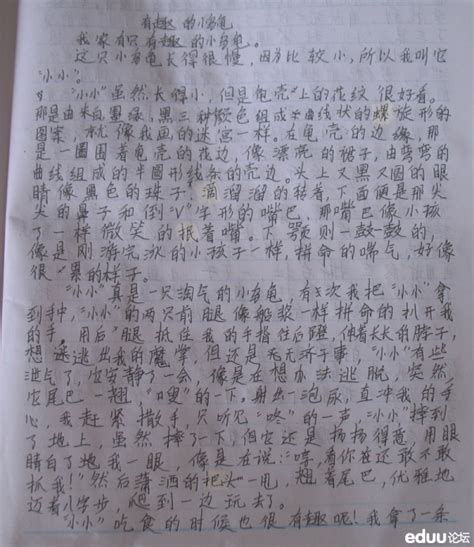 有趣的小乌龟
我家有只有趣的小乌龟。
这只小乌龟长得很慢，因为比较小，所以我叫它
“小小”。
“小小”虽然长得小，但是龟壳上的花纹很好看。
那是由米白、墨绿、黑三种颜色组成曲线状的螺旋形的
图案，就像我画的迷宫一样。在龟壳的边缘，那
是一圈围着龟壳的花边，像漂亮的裙子，由弯弯的
曲线组成的半圆形线条的壳边。头上又黑又圆的眼
睛像黑色的珠子，滴溜溜的转着，下面便是那尖
尖的鼻子和倒“V”字形的嘴巴，那嘴巴像小孩
了一样微笑的抿着嘴。下颚则一鼓一鼓的，
像是刚游完泳的小孩子一样，拼命的喘气，好像
很累的样子。
“小小”真是一只淘气的小乌龟，有次我把“小小”拿
到手中，“小小”的两只前腿像船桨一样拼命的扒开我
的手，用后腿抵住我的手指往后蹬，伸着长长的脖子，
想逃出我的魔掌，但还是无济于事，“小小”有些
泄气了，它安静了一会，像是在想办法逃脱，突然
它尾巴一翘，“嗖”的一下，射出一泡尿，直冲我的手
心，我赶紧撒手，只听见“咚”的一声“小小”摔到
了地上，虽然摔了一下但它还是扬扬得意，用眼
睛白了地我一眼，像是在说：“哼，看你还敢不敢
抓我！”然后潇洒的把头一甩，翘着尾巴，优雅地
迈着八字步，爬到一边玩去了。
“小小”吃食的时候也很有趣呢！我拿了一条
eduu论坛